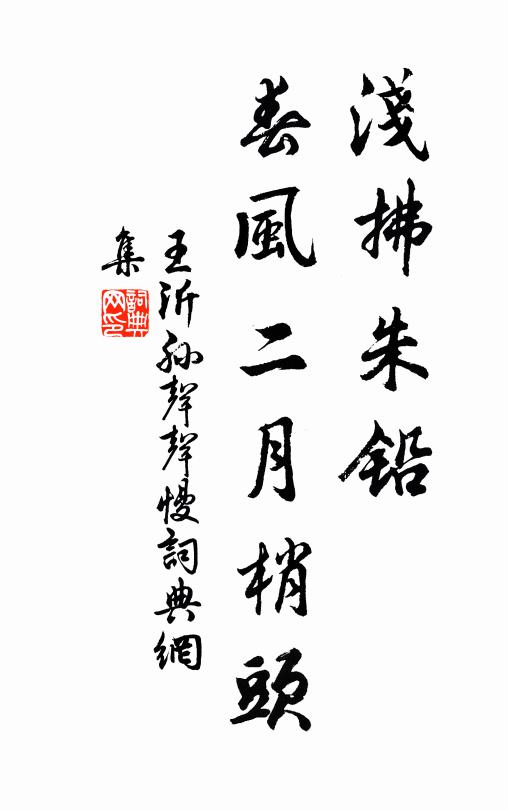 淺拂朱鉛
春風二月梢頭
王沂孫聲聲慢詞典網
集
詞典
网印